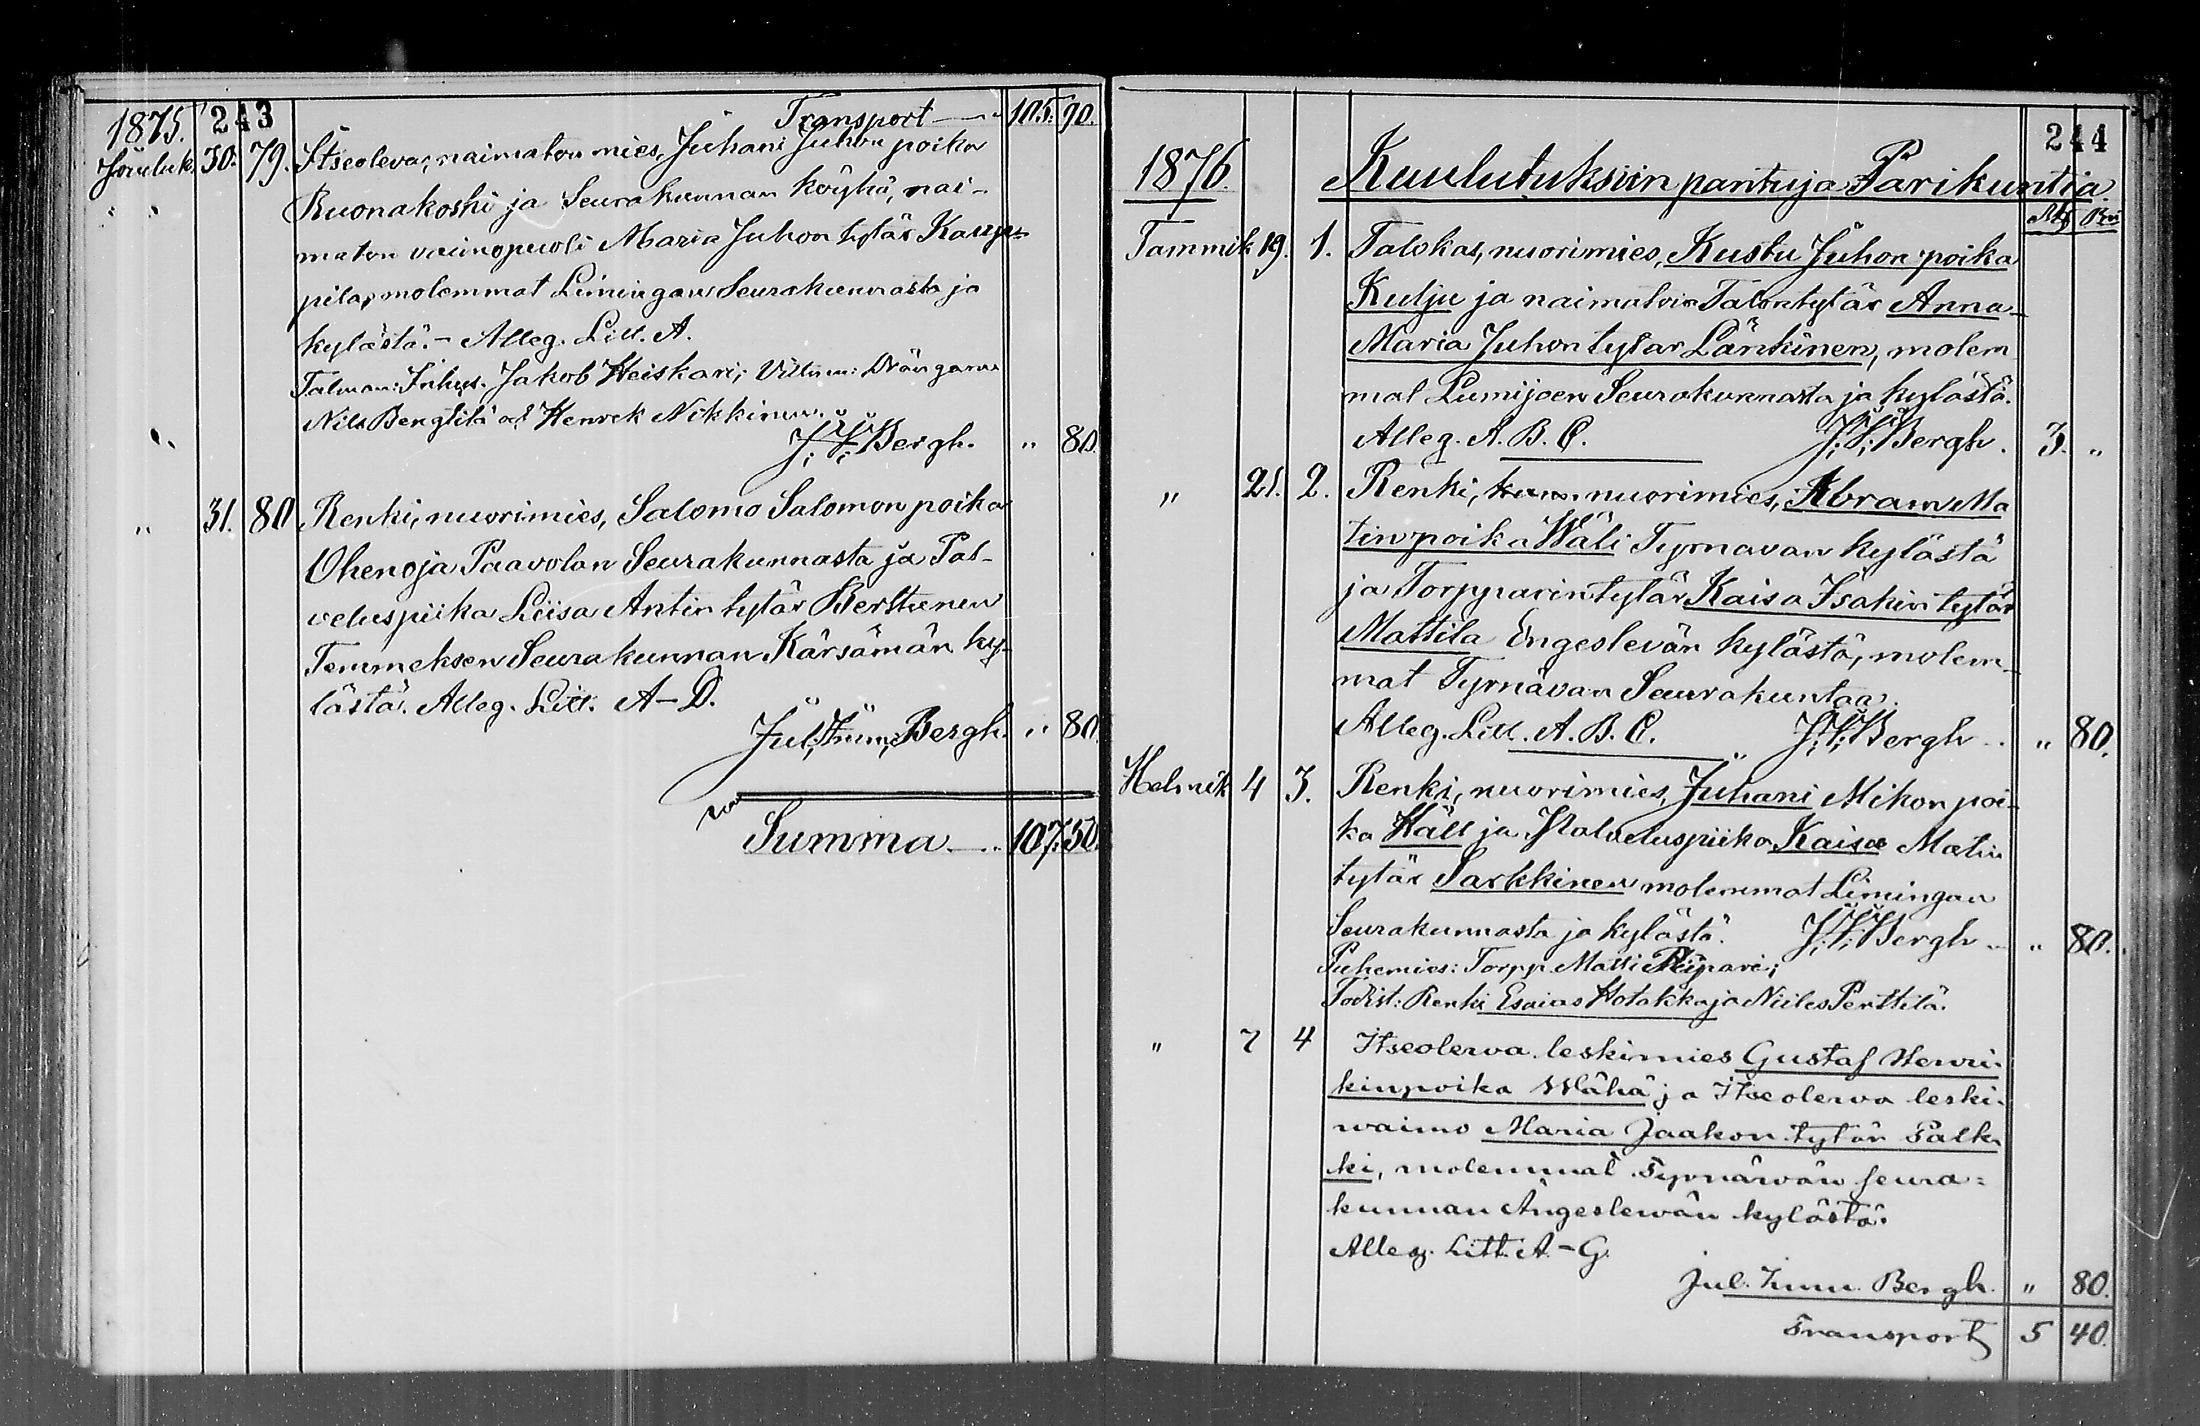 243
Transport 105: 90.
1875.
Jouluk. 30. 79. Itseoleva, naimaton mies, Juhani Juhon poika
" " Ruonakoski ja Seurakunnan köyhä, nai-
maton vaimopuoli Maria Juhon tytär Kaup-
pila, molemmat Limingan Seurakunnasta ja
kylästä. - Alleg. Litt. A.
Talman: Inhys. Jakob Heiskari; Vittnen: Drängarne
Nils Bengtilä och Henrik Nikkinen.
J. I. Bergh. " 80.
" 31. 80 Renki, nuorimies, Salomo Salomon poika
Ohenoja Paavolan Seurakunnasta ja Pal-
veluspiika Liisa Antin tytär Berttunen
Temmeksen Seurakunnan Kärsämän ky-
lästä. Alleg. Litt. A-D.
Jul. Imm. Bergh. " 80.
Summa 107: 50.
244
1876. Kuulutuksiin pantuja Parikuntia
Mk Pni
Tammik 19. 1. Talokas, nuorimies, Kustu Juhon poika
Kulju ja naimatoin Talontytär Anna-
Maria Juhon tytär Länkinen, molem
mat Lumijoen Seurakunnasta ja kylästä.
Alleg. A. B. C. J. I. Bergh. 3. "
" 21. 2. Renki, nuorimies, Abram Ma
tinpoika Wäli Tyrnavan kylästä
ja Torpparintytär Kaisa Isakin tytär
Mattila Engeslevän kylästä, molem-
mat Tyrnävan Seurakuntaa.
Alleg. Litt. A. B. C. J. I. Bergh " 80.
Helmik 4 3. Renki, nuorimies, Juhani Mikon poi-
ka Häll ja Palveluspiika Kaisa Matin
tytär Sarkkinen molemmat Limingan
Seurakunnasta ja kylästä. J. I. Bergh " 80.
Puhemies: Torpp. Matti Riipari;
Todist: Renki Esaias Hotakka ja Niiles Perttilä.
" 7 4 Itseolewa leskimies Gustaf Henri-
kinpoika Wähä ja Itseolewa leski-
waimo Maria Jaakon tytär Palk
ki, molemmat Tyrnäwän seura=
kunnan Ängeslewän kylästä.
Alleg. Litt. A - G.
Jul. Imm. Bergh. " 80.
Transport 5 40.